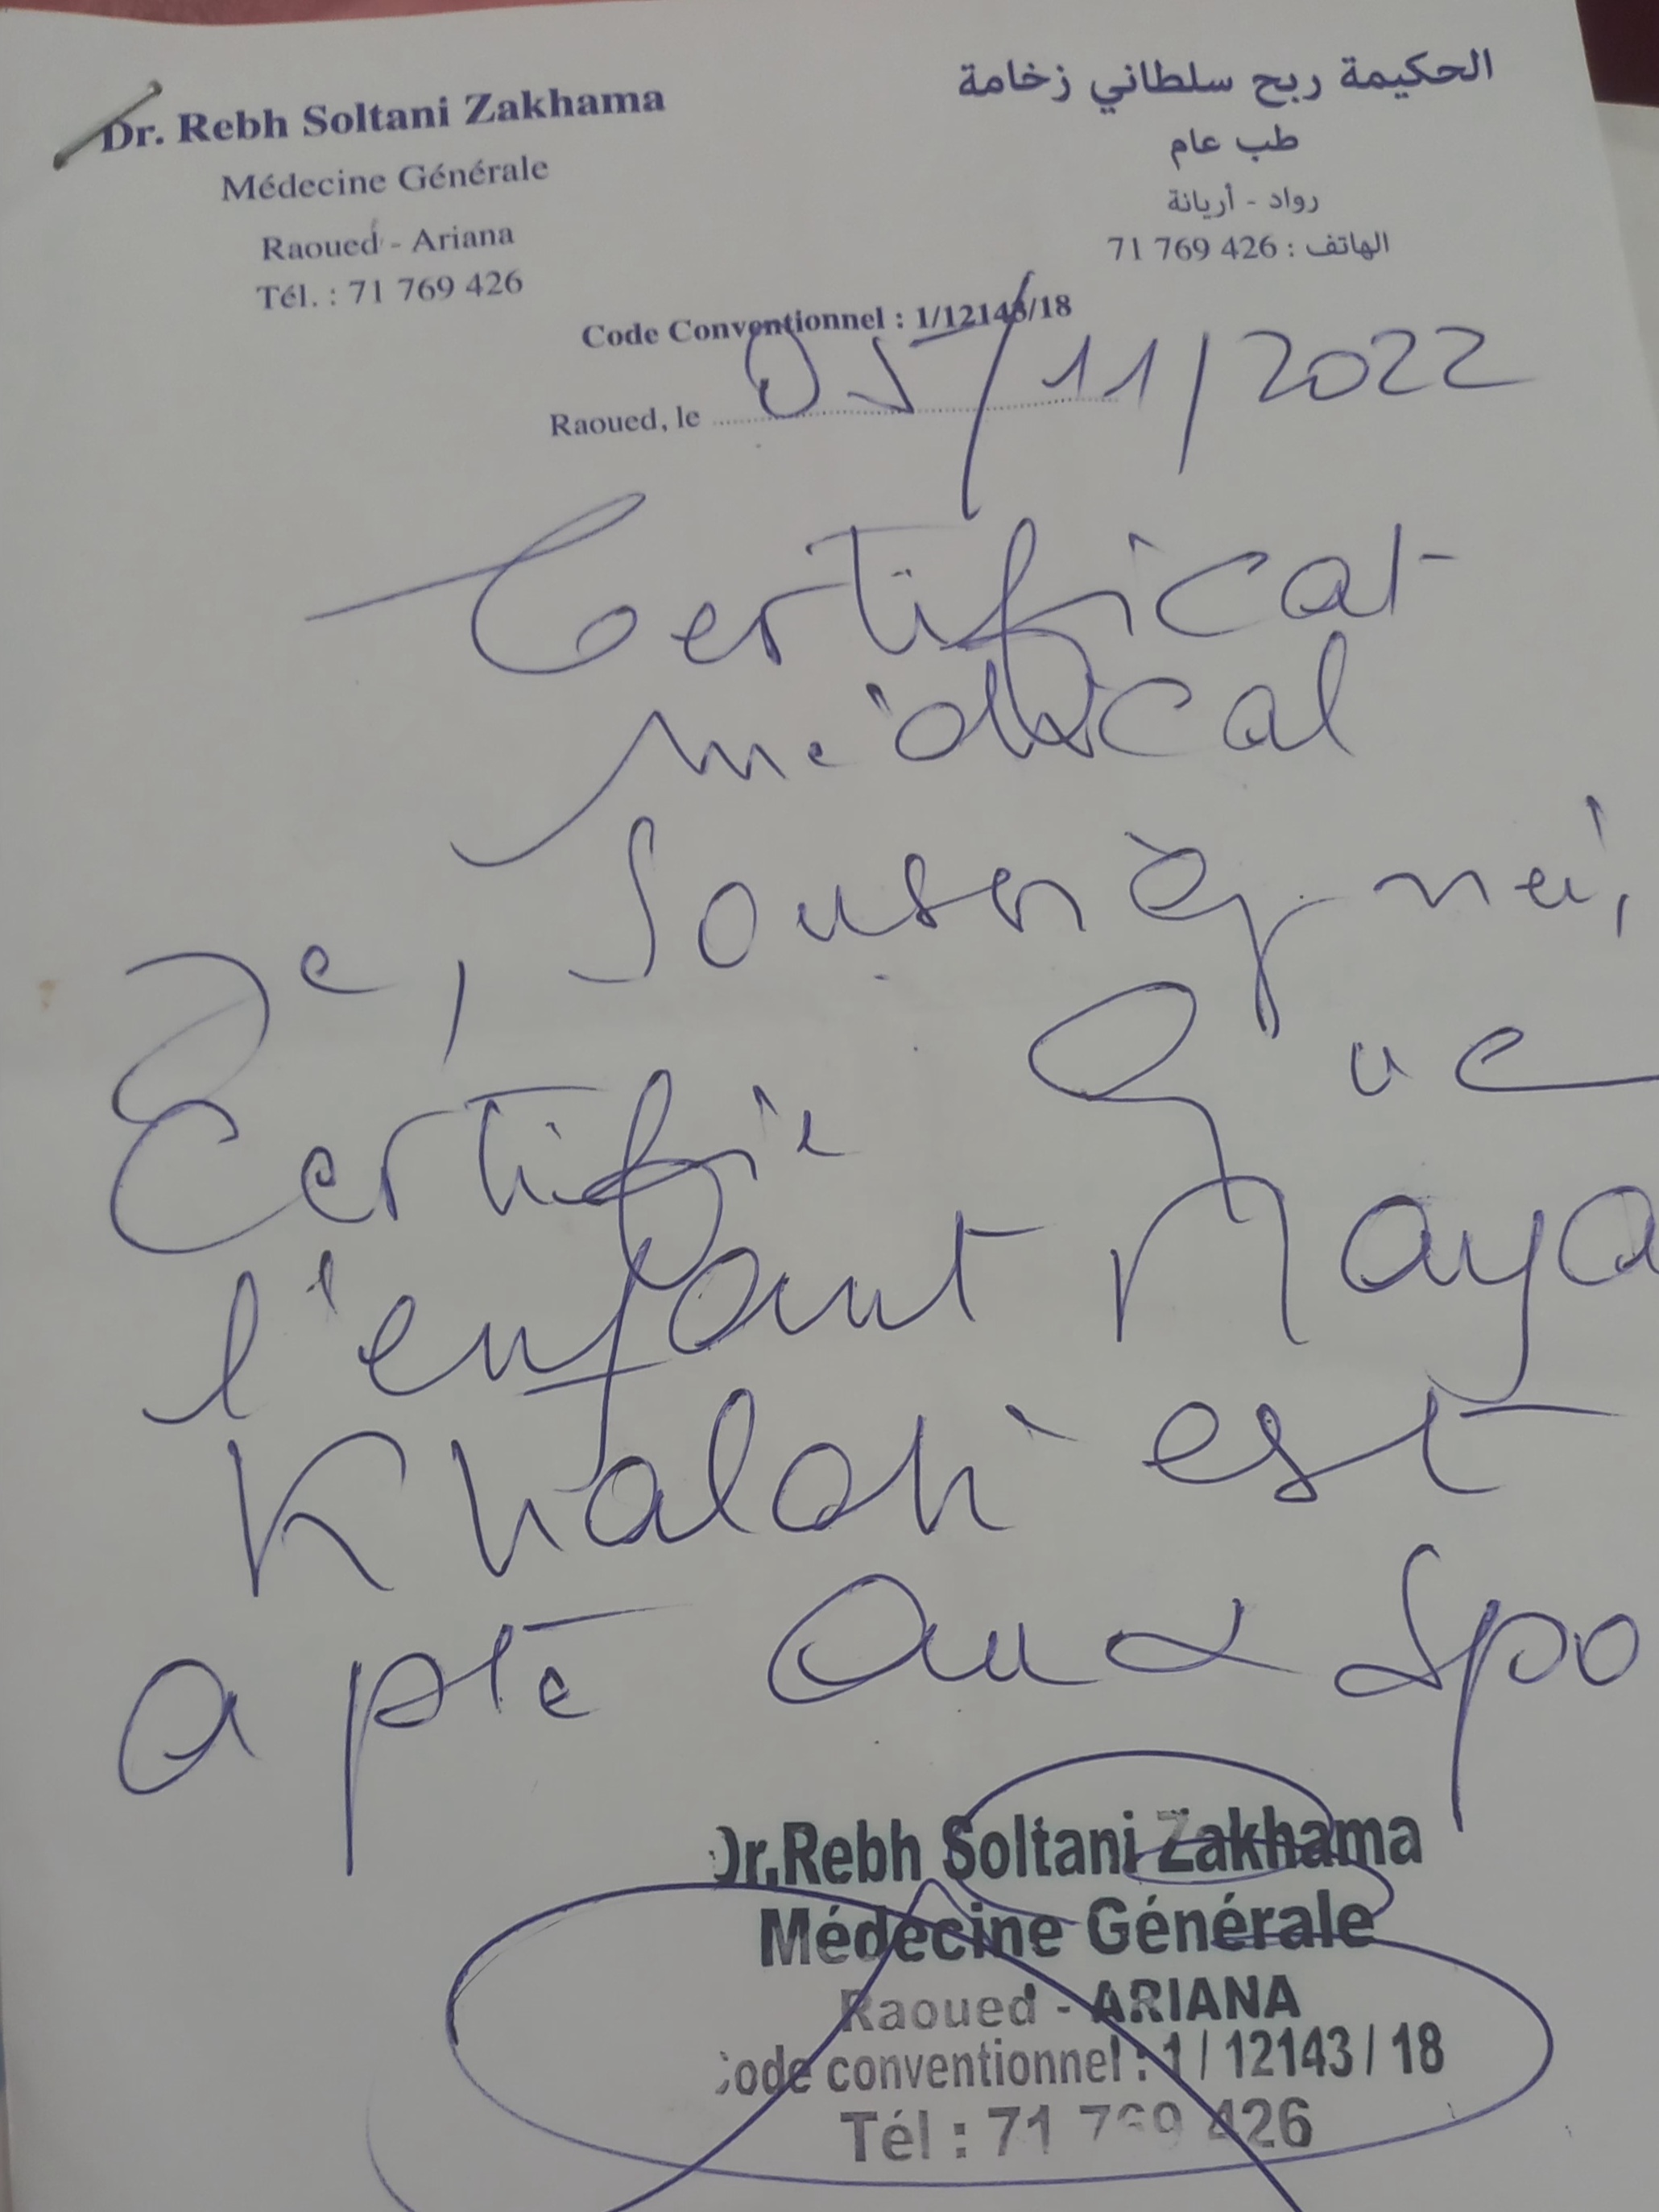 Dr. Rebh Soltani Zakhama
Médecine Générale
Raoued - Ariana
Tél. : 71 769 426
الحكيمة ربح سلطاني زخامة
طب عام
رواد - أريانة
الهاتف : 426 769 71
Code Conventionnel : 1/12143/18
Raoued, le 05/11/2022
Certificat
médical
Je, soussigné,
Certifie Que
l'enfant Maya
est
apte aux spo
Dr.Rebh Soltani Zakhama
Médecine Générale
Raoued - ARIANA
Code conventionnel : 1 / 12143 / 18
Tél : 71 769 426